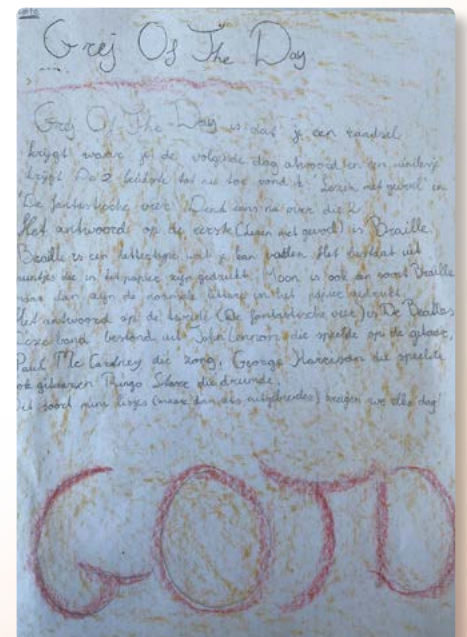 Grej Of The Day
Grej Of The Day is dat je een raadsel
krijgt waar je de volgende dag antwoord en een minilesje
krijgt De 2 leukste tot nu toe vond ik "Lezen met gevoel" en
"De fantastische vier" Denk eens na over die 2
Het antwoord op de eerste (Lezen met gevoel) is Braille.
Braille is een lettertype wat je kan voelen Het bestaat uit
puntjes die in het papier zijn gedrukt. Moon is ook een soort Braille
maar dan zijn de normale letters in het papier gedrukt.
Het antwoord op de tweede (De fantastische vier) is De Beatles
Deze band bestond uit John Lennon die speelde op de gitaar,
Paul Mc Cartney die zong, George Harrison die speelde
ook gitaar en Ringo Starr die drumde.
Dit soort mini lesjes (maar dan uitgebreider) kregen we elke dag!
GOTD